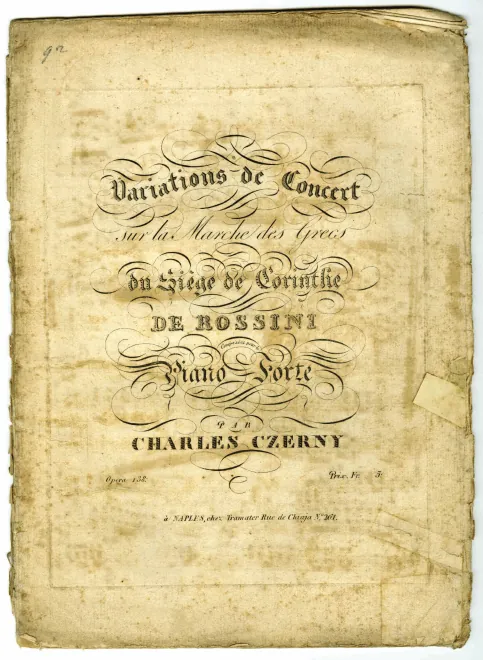 92
Variations de Concert
sur la Marche des Grecs
du Siège de Corinthe
DE ROSSINI
Composées pour le
Piano Forte
PAR
CHARLES CZERNY
Opera 138. Prix. Fr. 5.
à NAPLES, chez Tramater Rue de Chiaja N.º 261.